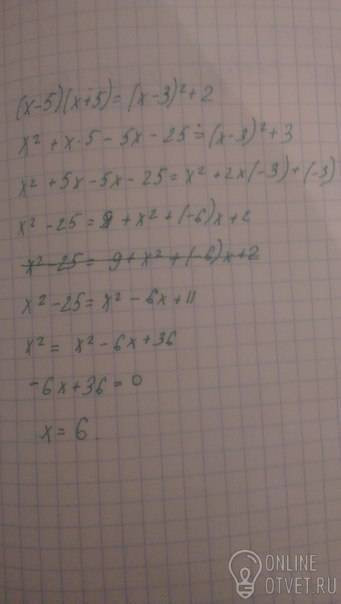 (x-5)(x+5)=(x-3)²+2
x²+x·5-5x-25=(x-3)²+3
x²+5x-5x-25=x²+2x(-3)+(-3)
x²-25=9+x²+(-6)x+2
x²-25=9+x²+(-6)x+2
x²-25=x²-6x+11
x²=x²-6x+36
-6x+36=0
x=6
ONLINE
OTVET.RU